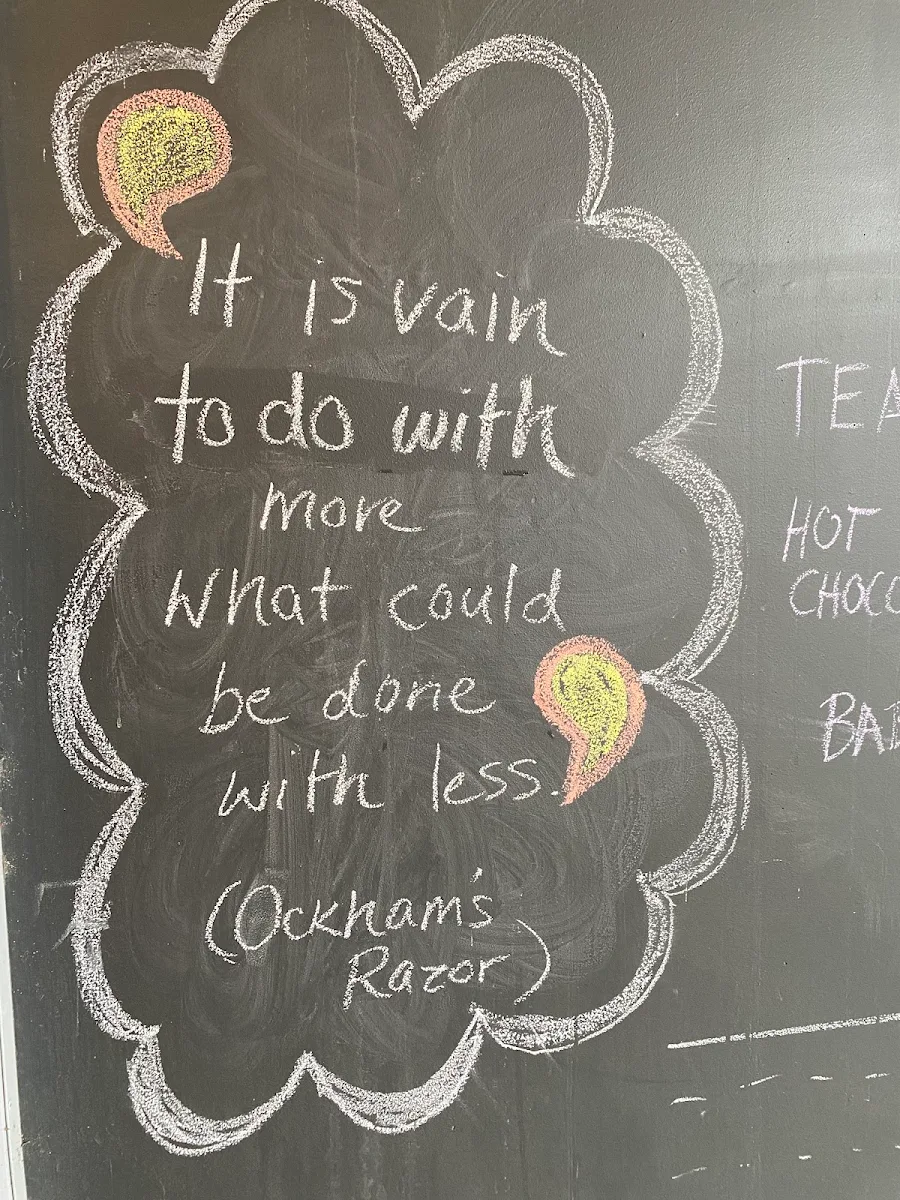 It is vain
to do with
more
What could
be done
with less.
(Ockham's
Razor)
TEA
HOT
CHOCO
BA